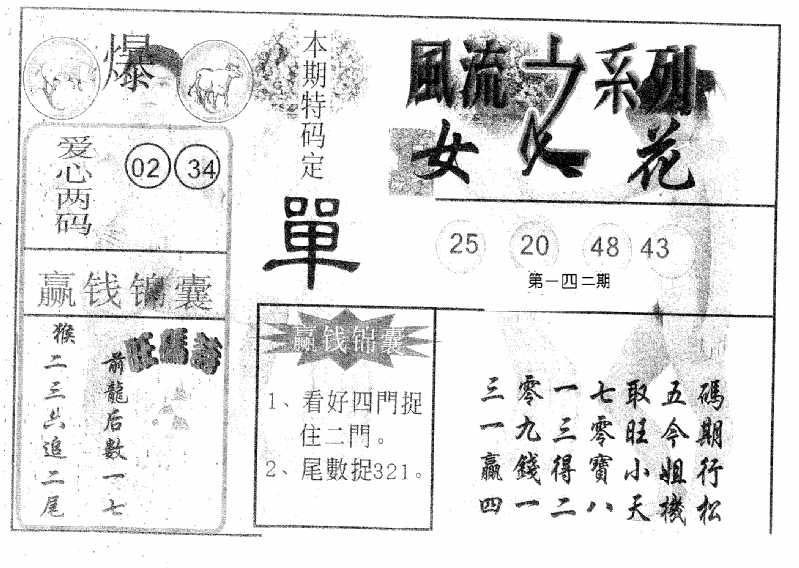 爆
本期特码定
單
風流之系列
女人花
爱心两码
02 34
25 20 48 43
第一四二期
赢钱锦囊
猴二三六追二尾
前龍后數一七
旺碼詩
赢钱锦囊
1、看好四門捉
住二門。
2、尾數捉321。
碼期行松
五今姐機
取旺小天
七零寶八
一三得二
零九錢一
三一贏四